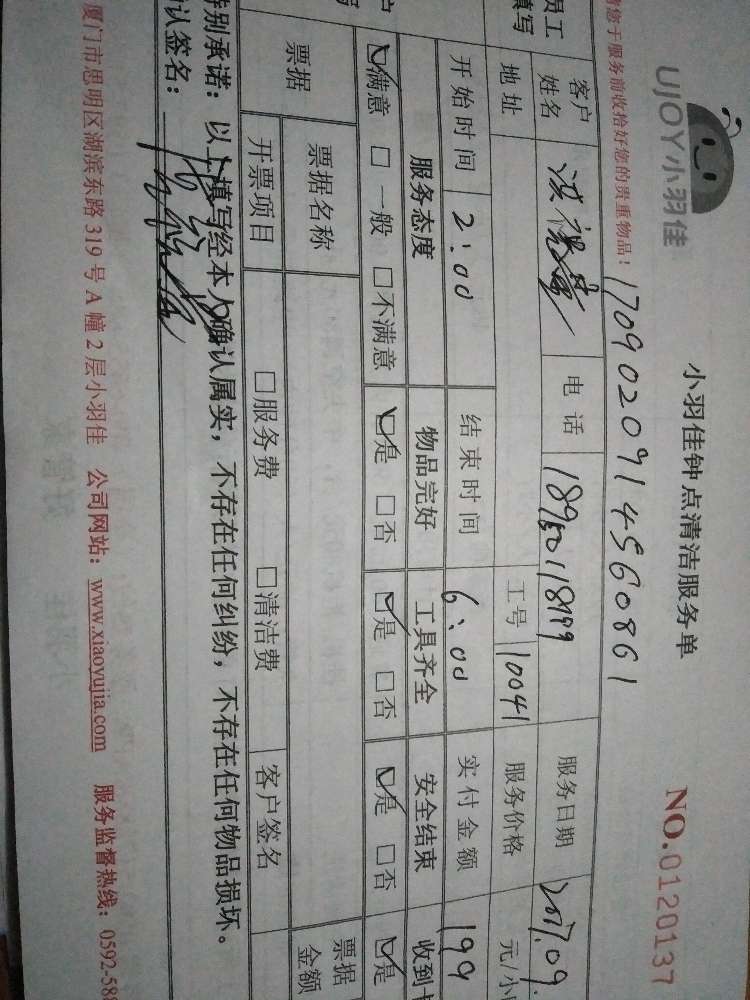 UJOY小羽佳
小羽佳钟点清洁服务单
NO.0120137
您于服务前收拾好您的贵重物品！
1709020914560861
员工
填写
客户
姓名
电话
服务日期
地址
工号
10041
服务价格
元/小
开始时间
2:00
结束时间
6:00
实付金额
199
服务态度
物品完好
工具齐全
安全结束
收到
满意 □一般 □不满意
是 □否
是 □否
是 □否
是
票据
票据名称
票据
金额
开票项目
□服务费 □清洁费
客户签名
特别承诺：以上填写经本人确认属实，不存在任何纠纷，不存在任何物品损坏。
认签名：
厦门市思明区湖滨东路 319 号 A 幢 2 层小羽佳 公司网站：www.xiaoyujia.com 服务监督热线：0592-588